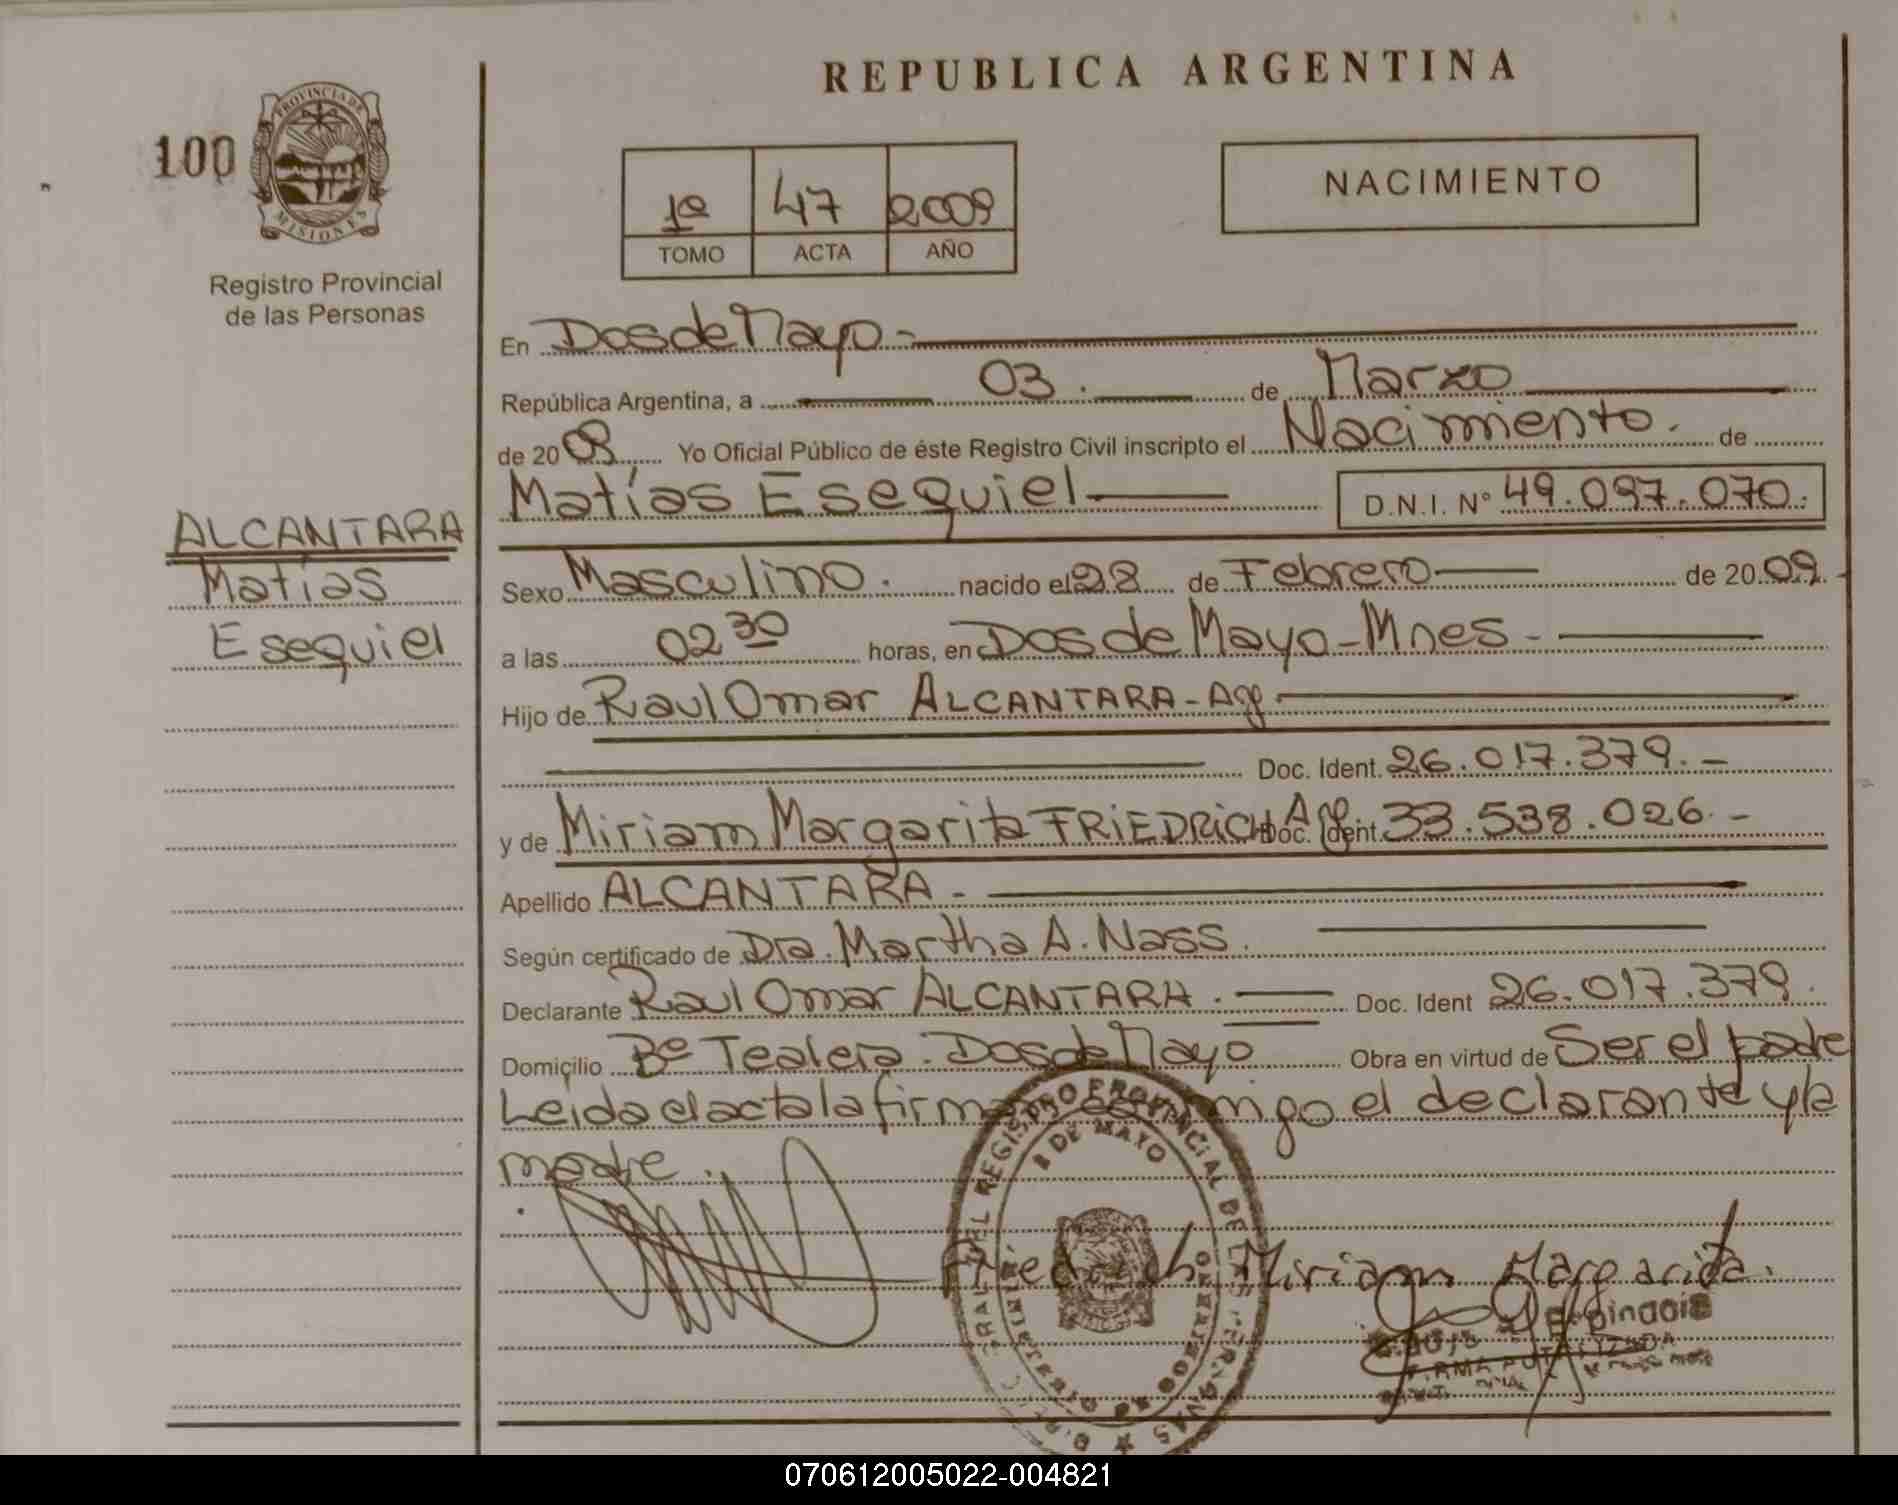 REPUBLICA ARGENTINA
100
PROVINCIA DE
MISIONES
Registro Provincial
de las Personas
1º 47 2009
TOMO ACTA AÑO
NACIMIENTO
En Dos de Mayo -
República Argentina, a 03. de Marzo
de 2009 Yo Oficial Público de éste Registro Civil inscripto el Nacimiento. de
Matías Esequiel D.N.I. Nº 49.097.070.
ALCANTARA
Matías
Esequiel
Sexo Masculino. nacido el 28 de Febrero de 2009.-
a las 02 30 horas, en Dos de Mayo - Mnes -
Hijo de Raul Omar ALCANTARA - Arg
Doc. Ident. 26.017.379.-
y de Miriam Margarita FRIEDRICH Arg Doc. Ident. 33.538.026.-
Apellido ALCANTARA -
Según certificado de Dra. Martha A. Nass.
Declarante Raul Omar ALCANTARA. Doc. Ident 26.017.379.
Domicilio Bº Tealera. Dos de Mayo Obra en virtud de Ser el padre
Leida el acta la firman conmigo el declarante y la
madre.
REGISTRO PROVINCIAL DE LAS
DE MAYO
Miriam Margarita.
070612005022-004821